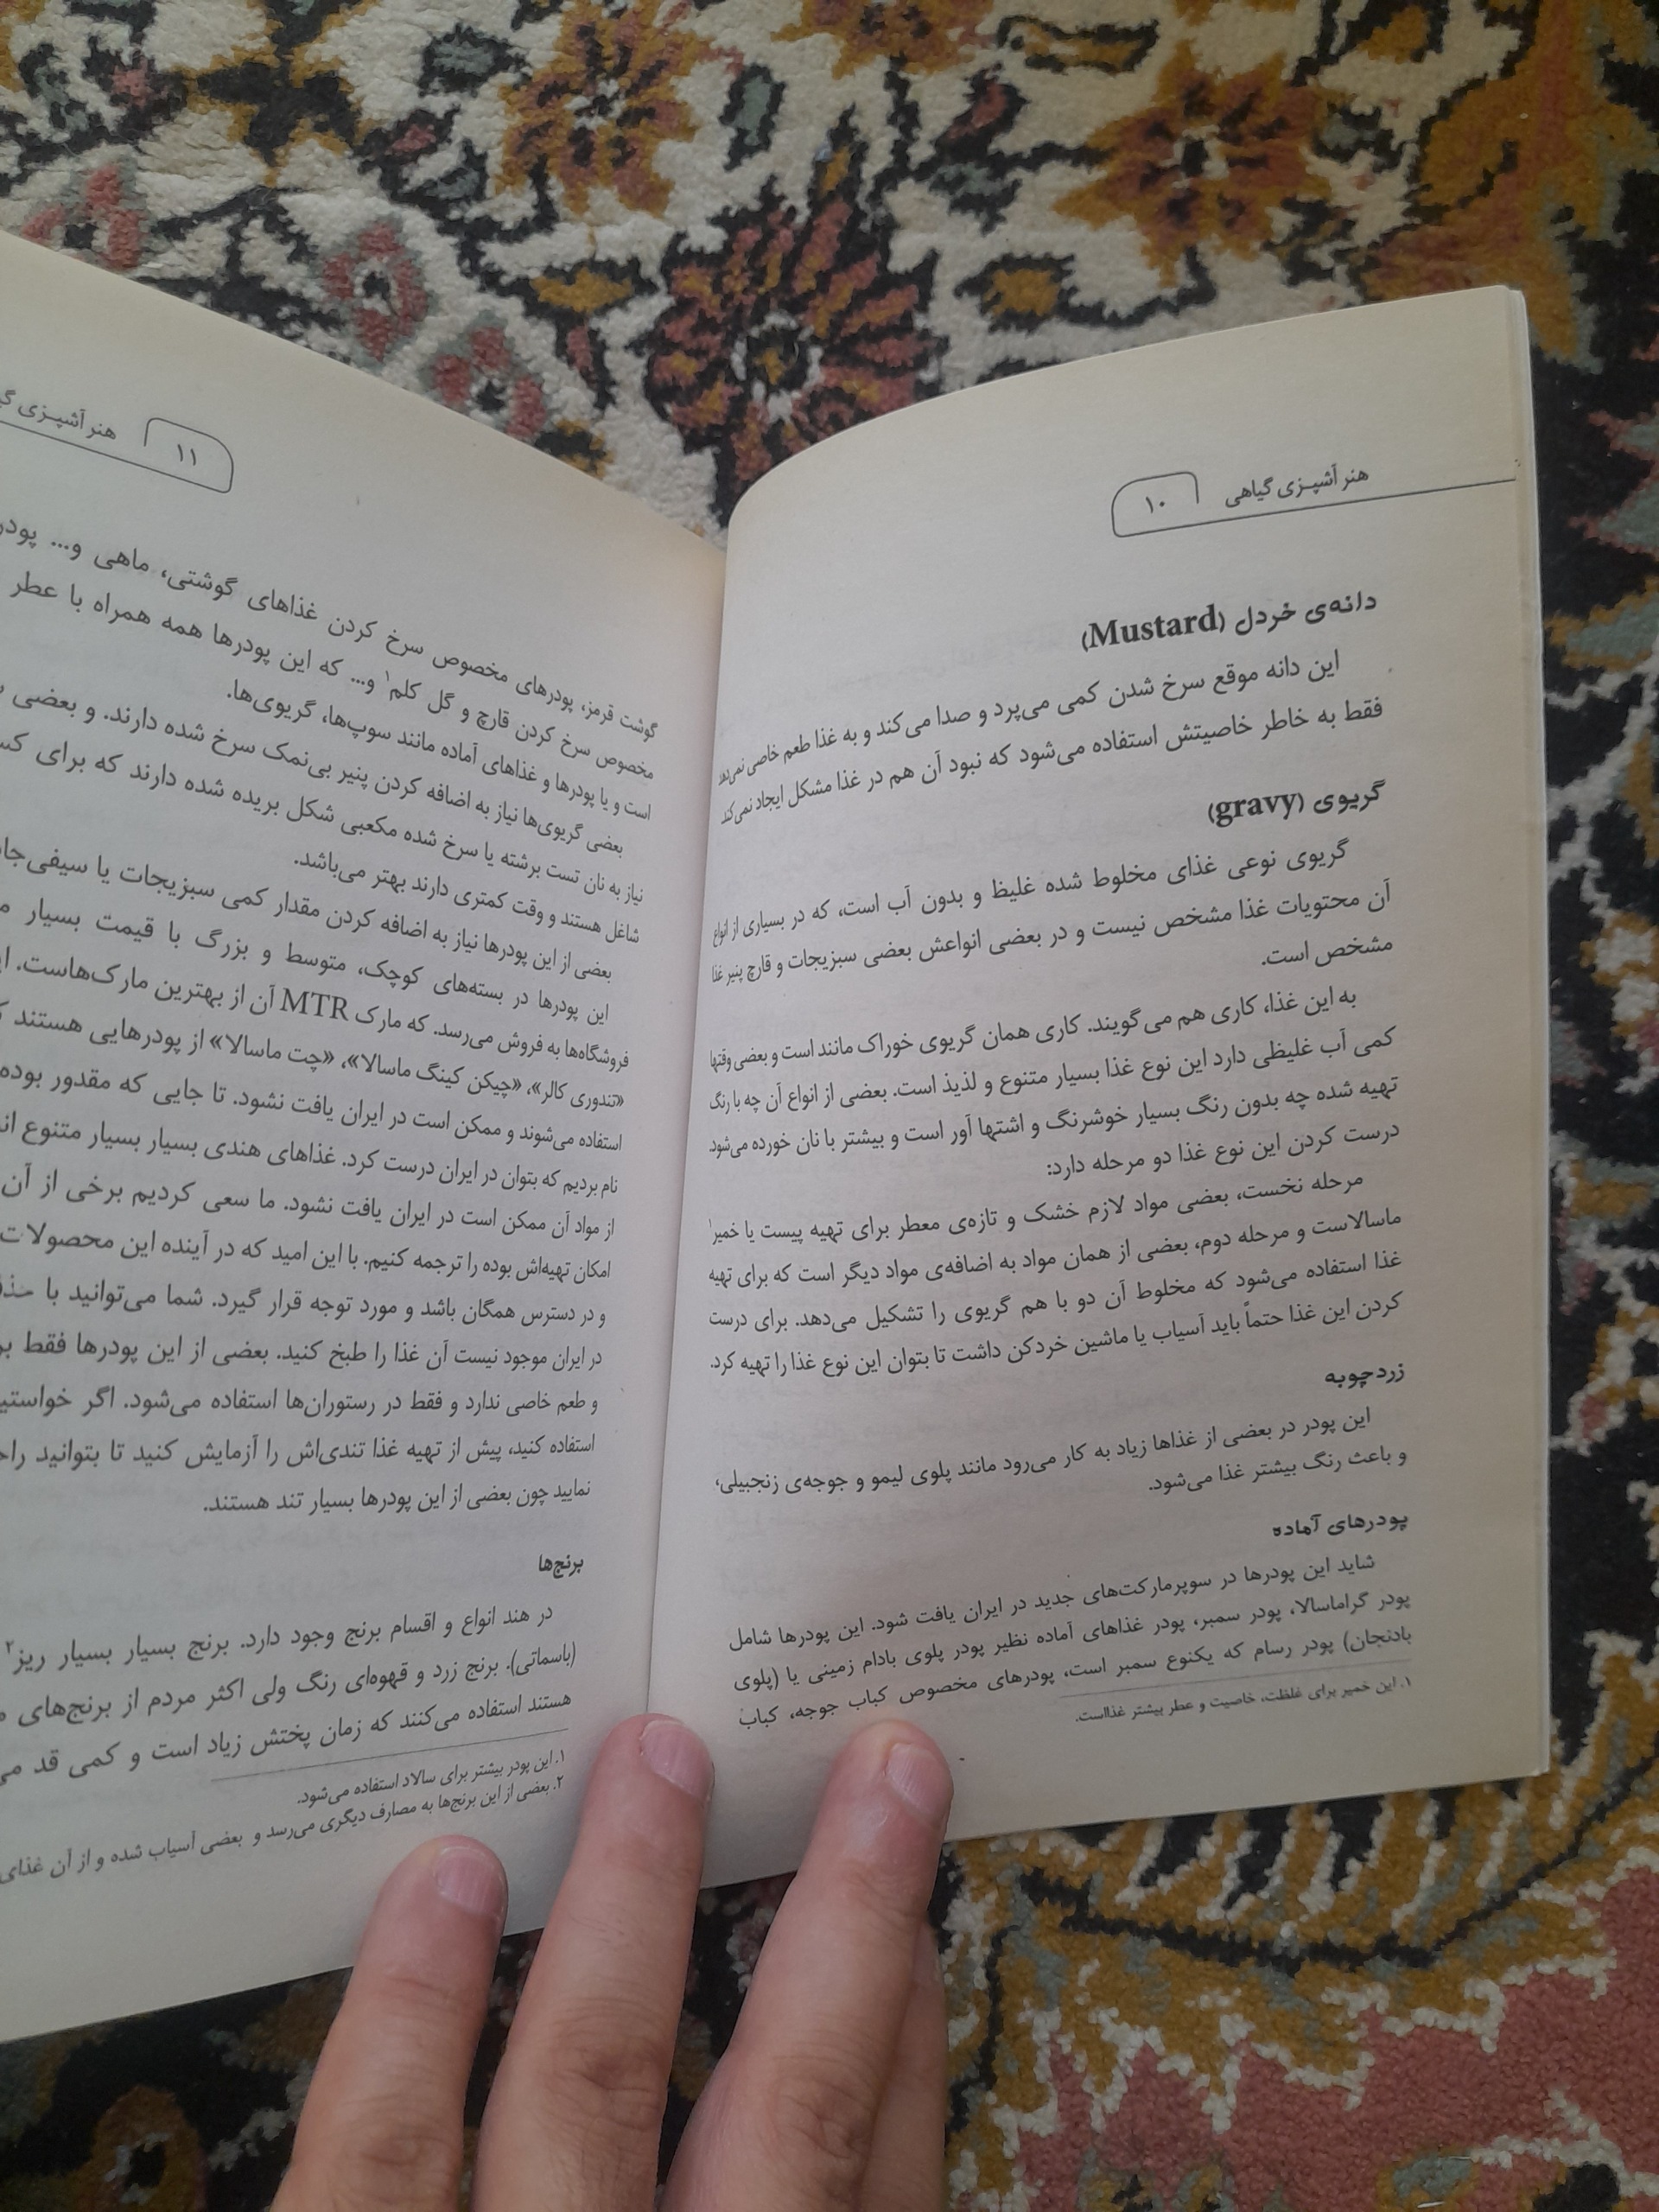 هنر آشپـزی گیاهی
۱۰
دانه‌ی خردل (Mustard)
این دانه موقع سرخ شدن کمی می‌پرد و صدا می‌کند و به غذا طعم خاصی نمی‌دهد
فقط به خاطر خاصیتش استفاده می‌شود که نبود آن هم در غذا مشکل ایجاد نمی‌کند
گریوی (gravy)
گریوی نوعی غذای مخلوط شده غلیظ و بدون آب است، که در بسیاری از انواع
آن محتویات غذا مشخص نیست و در بعضی انواعش بعضی سبزیجات و قارچ پنیر غذا
مشخص است.
به این غذا، کاری هم می‌گویند. کاری همان گریوی خوراک مانند است و بعضی وقتها
کمی آب غلیظی دارد این نوع غذا بسیار متنوع و لذیذ است. بعضی از انواع آن چه با رنگ
تهیه شده چه بدون رنگ بسیار خوشرنگ و اشتها آور است و بیشتر با نان خورده می‌شود
درست کردن این نوع غذا دو مرحله دارد:
مرحله نخست، بعضی مواد لازم خشک و تازه‌ی معطر برای تهیه پیست یا خمیر۱
ماسالاست و مرحله دوم، بعضی از همان مواد به اضافه‌ی مواد دیگر است که برای تهیه
غذا استفاده می‌شود که مخلوط آن دو با هم گریوی را تشکیل می‌دهد. برای درست
کردن این غذا حتماً باید آسیاب یا ماشین خردکن داشت تا بتوان این نوع غذا را تهیه کرد.
زردچوبه
این پودر در بعضی از غذاها زیاد به کار می‌رود مانند پلوی لیمو و جوجه‌ی زنجبیلی،
و باعث رنگ بیشتر غذا می‌شود.
پودرهای آماده
شاید این پودرها در سوپرمارکت‌های جدید در ایران یافت شود. این پودرها شامل
پودر گراماسالا، پودر سمبر، پودر غذاهای آماده نظیر پودر پلوی بادام زمینی یا (پلوی
بادنجان) پودر رسام که یکنوع سمبر است، پودرهای مخصوص کباب جوجه، کباب
۱. این خمیر برای غلظت، خاصیت و عطر بیشتر غذااست.
هنر آشپـزی
۱۱
گوشت قرمز، پودرهای مخصوص سرخ کردن غذاهای گوشتی، ماهی و...
مخصوص سرخ کردن قارچ و گل کلم۱ و... که این پودرها همه همراه با عطر
است و یا پودرها و غذاهای آماده مانند سوپ‌ها، گریوی‌ها.
بعضی گریوی‌ها نیاز به اضافه کردن پنیر بی‌نمک سرخ شده دارند. و بعضی
نیاز به نان تست برشته یا سرخ شده مکعبی شکل بریده شده دارند که برای
شاغل هستند و وقت کمتری دارند بهتر می‌باشد.
بعضی از این پودرها نیاز به اضافه کردن مقدار کمی سبزیجات یا
این پودرها در بسته‌های کوچک، متوسط و بزرگ با قیمت بسیار
فروشگاه‌ها به فروش می‌رسد. که مارک MTR آن از بهترین مارک‌هاست.
«تندوری کالر»، «چیکن کینگ ماسالا»، «چت ماسالا» از پودرهایی هستند
استفاده می‌شوند و ممکن است در ایران یافت نشود. تا جایی که مقدور بوده
نام بردیم که بتوان در ایران درست کرد. غذاهای هندی بسیار بسیار متنوع
از مواد آن ممکن است در ایران یافت نشود. ما سعی کردیم برخی از آن
امکان تهیه‌اش بوده را ترجمه کنیم. با این امید که در آینده این محصولات
و در دسترس همگان باشد و مورد توجه قرار گیرد. شما می‌توانید با
در ایران موجود نیست آن غذا را طبخ کنید. بعضی از این پودرها فقط
و طعم خاصی ندارد و فقط در رستوران‌ها استفاده می‌شود. اگر
استفاده کنید، پیش از تهیه غذا تندی‌اش را آزمایش کنید تا بتوانید
نمایید چون بعضی از این پودرها بسیار تند هستند.
برنج‌ها
در هند انواع و اقسام برنج وجود دارد. برنج بسیار بسیار ریز۲
(باسماتی). برنج زرد و قهوه‌ای رنگ ولی اکثر مردم از برنج‌های
هستند استفاده می‌کنند که زمان پختش زیاد است و کمی قد
۱. این پودر بیشتر برای سالاد استفاده می‌شود.
۲. بعضی از این برنج‌ها به مصارف دیگری می‌رسد و بعضی آسیاب شده و از آن غذای